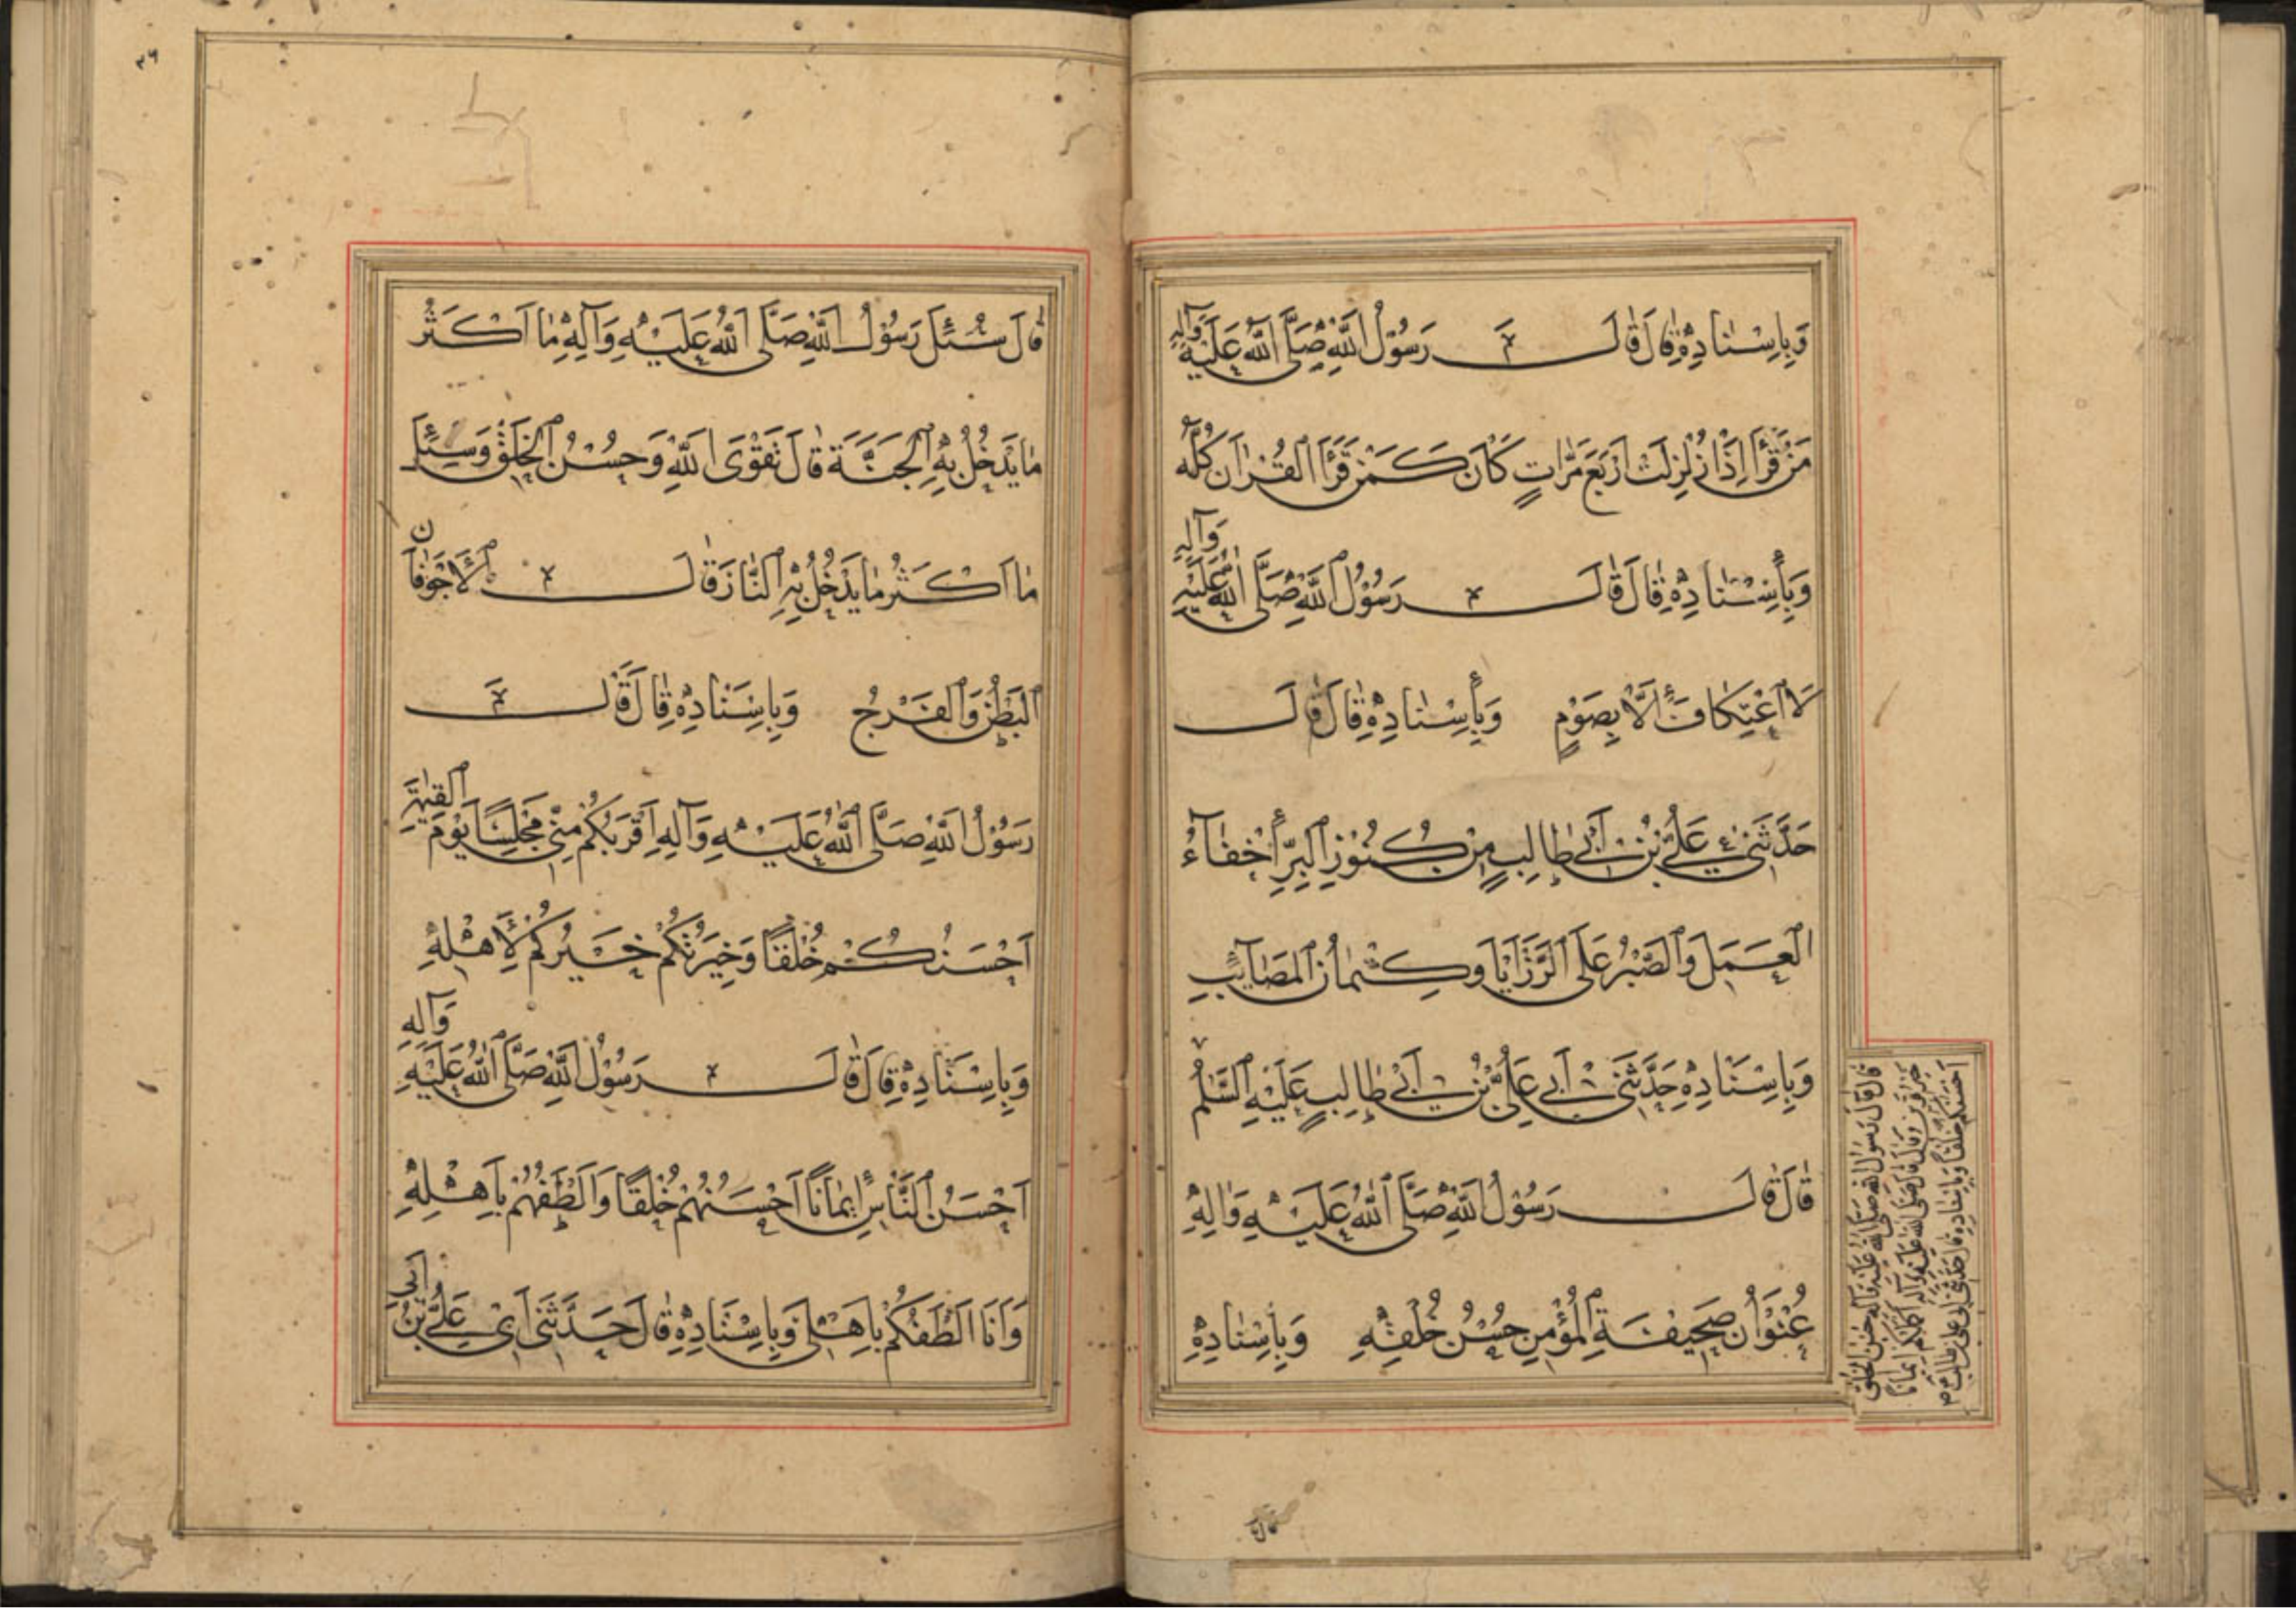 وَبِاِسْنَادِهِ قَالَ قَالَ رَسُوْلُ اللّٰهِ صَلَّى اللّٰهُ عَلَيْهِ وَآلِهِ
مَنْ قَرَأَ اِذَا زُلْزِلَتْ اَرْبَعَ مَرَّاتٍ كَانَ كَمَنْ قَرَأَ الْقُرْاٰنَ كُلَّهُ
وَبِأِسْنَادِهِ قَالَ قَالَ رَسُوْلُ اللّٰهِ صَلَّى اللّٰهُ عَلَيْهِ وَآلِهِ
لَا اعْتِكَافَ اِلَّا بِصَوْمٍ وَبِأِسْنَادِهِ قَالَ قَالَ
حَدَّثَنِي عَلِيُّ بْنُ اَبِي طَالِبٍ مِنْ كُنُوْزِ الْبِرِّ اِخْفَآءُ
الْعَمَلِ وَالصَّبْرُ عَلَى الرَّزَايَا وَكِتْمَانُ الْمَصَائِبِ
وَبِاِسْنَادِهِ حَدَّثَنِي اَبِي عَلِيُّ بْنُ اَبِي طَالِبٍ عَلَيْهِ السَّلٰمُ
قَالَ قَالَ رَسُوْلُ اللّٰهِ صَلَّى اللّٰهُ عَلَيْهِ وَاٰلِهِ
عُنْوَانُ صَحِيْفَةِ الْمُؤْمِنِ حُسْنُ خُلْقِهِ وَبِأِسْنَادِهِ
قال قال رسول الله صلى الله عليه وآله حسن الخلق
خير قرين وقال قال صلى الله عليه وآله اكملكم ايمانا
احسنكم خلقا وباسناده قال حدثني ابي علي بن ابي طالب ع م
٣٦
قَالَ سُئِلَ رَسُوْلُ اللّٰهِ صَلَّى اللّٰهُ عَلَيْهِ وَآلِهِ مَا اَكْثَرُ
مَا يَدْخُلُ بِهِ الْجَنَّةَ قَالَ تَقْوَى اللّٰهِ وَحُسْنُ الْخُلْقِ وَسُئِلَ
مَا اَكْثَرُ مَا يَدْخُلُ بِهِ النَّارَ قَالَ الْاَجْوَفَانِ
الْبَطْنُ وَالْفَرْجُ وَبِاِسْنَادِهِ قَالَ قَالَ
رَسُوْلُ اللّٰهِ صَلَّى اللّٰهُ عَلَيْهِ وَآلِهِ اَقْرَبُكُمْ مِنِّي مَجْلِسًا يَوْمَ الْقِيٰمَةِ
اَحْسَنُكُمْ خُلْقًا وَخِيَرَتُكُمْ خَيْرُكُمْ لِاَهْلِهِ
وَبِاِسْنَادِهِ قَالَ قَالَ رَسُوْلُ اللّٰهِ صَلَّى اللّٰهُ عَلَيْهِ وَآلِهِ
اَحْسَنُ النَّاسِ اِيْمَانًا اَحْسَنُهُمْ خُلْقًا وَاَلْطَفُهُمْ بِاَهْلِهِ
وَاَنَا اَلْطَفُكُمْ بِاَهْلِي وَبِاِسْنَادِهِ قَالَ حَدَّثَنِي اَبِي عَلِيُّ بْنُ اَبِي